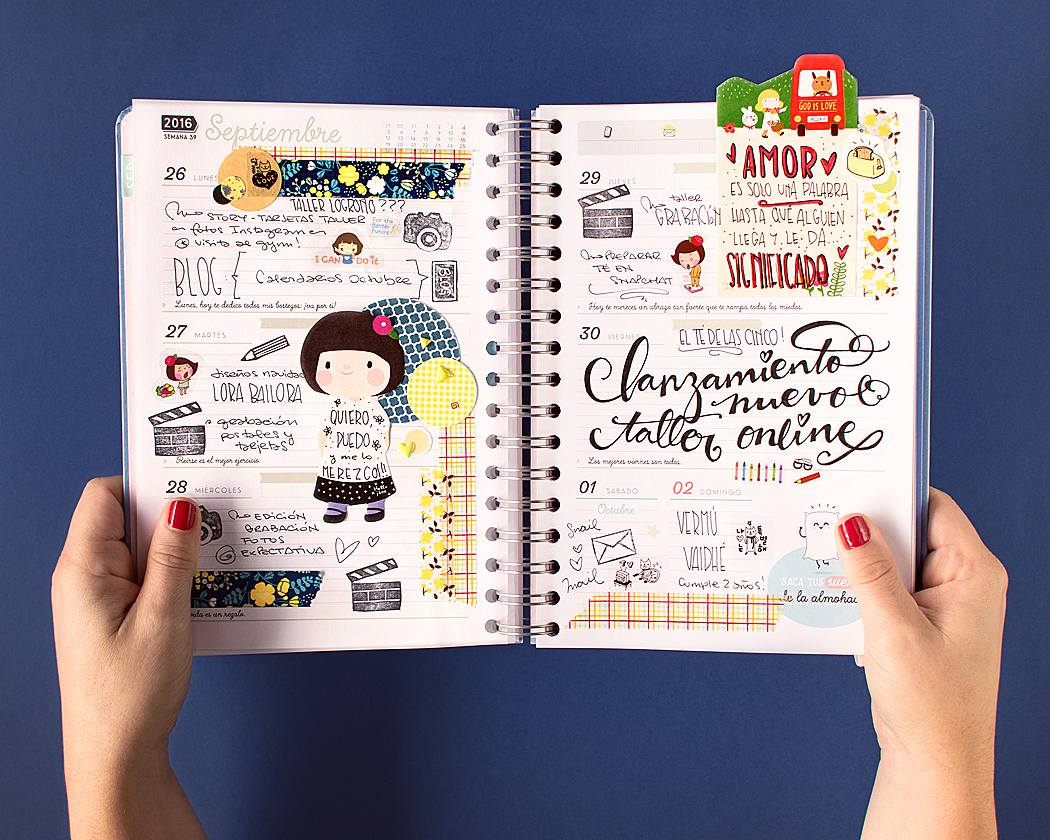 2016
SEMANA 39
Septiembre
26 LUNES
LOVE
TALLER LOGROÑO ???
STORY - TARJETAS TALLER
en fotos Instagram en
visita al gym!
For the Better Future!
I CAN Do it
BLOG { Calendarios Octubre }
BLOG
Lunes, hoy te dedico todos mis bostezos: ¡va por ti!
27 MARTES
diseños navidad
LORA BAILORA
grabación
postales y
tarjetas
Reírse es el mejor ejercicio.
QUIERO,
PUEDO
y me lo
MEREZCO!!
28 MIÉRCOLES
EDICIÓN
GRABACIÓN
FOTOS
EXPECTATIVA
vida es un regalo.
29 JUEVES
taller
GRABACIÓN
PREPARAR
TÉ EN
SNAPCHAT
GOD IS LOVE
AMOR
ES SOLO UNA PALABRA
HASTA QUE ALGUIEN
LLEGA Y LE DA
SIGNIFICADO
Hoy te mereces un abrazo tan fuerte que te rompa todos los miedos.
30 VIERNES
EL TÉ DE LAS CINCO!
Lanzamiento
nuevo
taller online
Los mejores viernes son todos.
01 SÁBADO
Octubre
Snail
mail
02 DOMINGO
VERMÚ
VAIDHÉ
Cumple 2 años!
SACA TUS sue
de la almohad